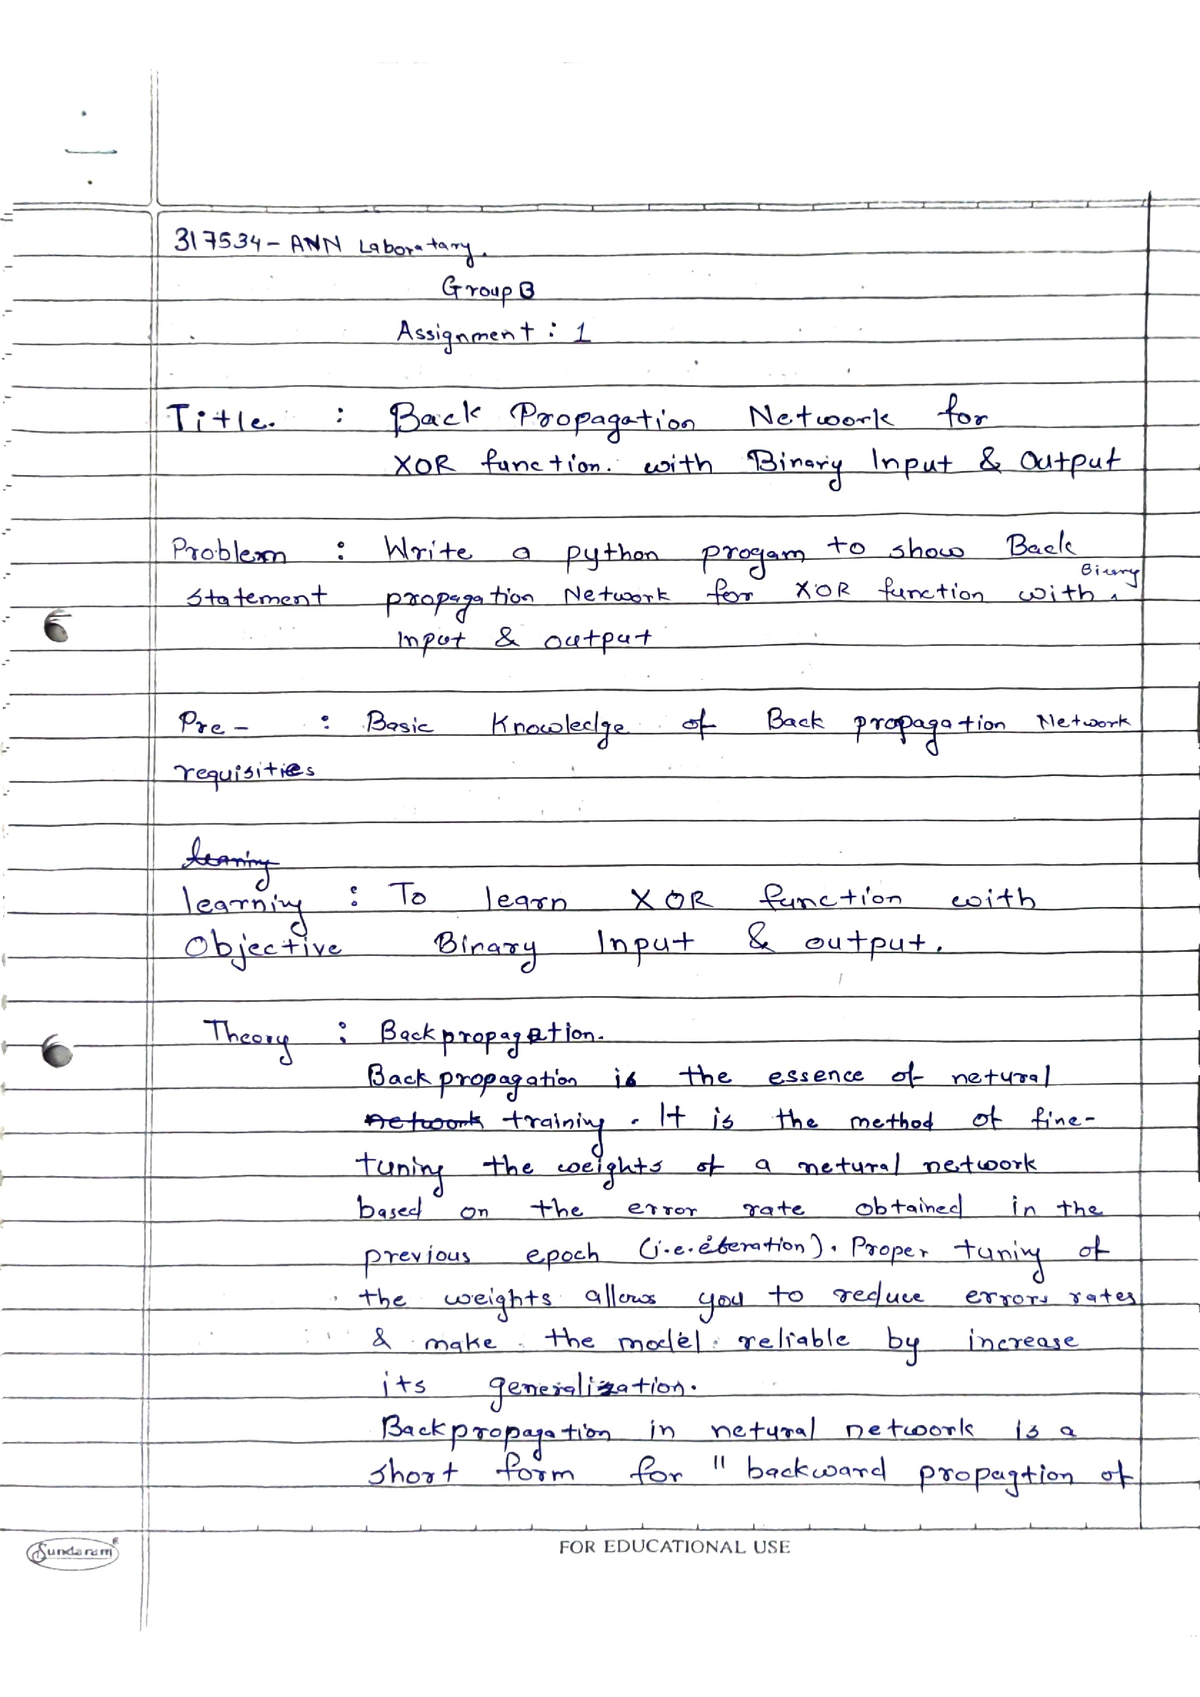 317534- ANN Laboratary.
Group B
Assignment : 1
Title. : Back Propagation Network for
XOR function. with Binary Input & Output
Problem : Write a python progam to show Back
Binary
statement propagation Network for XOR function with ^
Input & output
Pre - : Basic Knowledge of Back propagation Network
requisities
leaning
learning : To learn XOR function with
Objective Binary Input & output.
Theory : Backpropagation.
Backpropagation is the essence of netural
network training. It is the method of fine-
tuning the weights of a netural network
based on the error rate obtained in the
previous epoch (i.e. iteration). Proper tuning of
the weights allows you to reduce errors rates
& make the model reliable by increase
its generalization.
Backpropagation in netural network is a
short form for " backward propagtion of
Sundaram®
FOR EDUCATIONAL USE